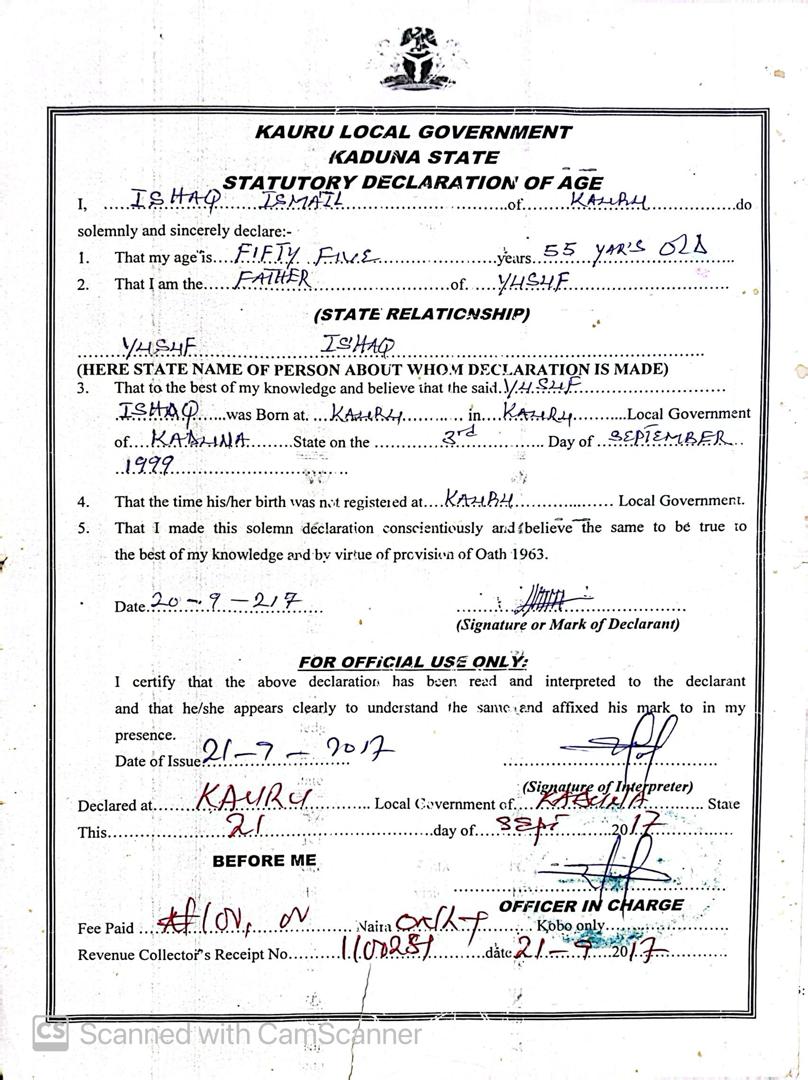 KAURU LOCAL GOVERNMENT
KADUNA STATE
STATUTORY DECLARATION OF AGE
I, ISHAQ ISMAIL of KAURU do
solemnly and sincerely declare:-
1. That my age is FIFTY FIVE years 55 YAR'S OLD
2. That I am the FATHER of YUSUF
(STATE RELATIONSHIP)
YUSUF ISHAQ
(HERE STATE NAME OF PERSON ABOUT WHOM DECLARATION IS MADE)
3. That to the best of my knowledge and believe that the said YUSUF
ISHAQ was Born at KAURU in KAURU Local Government
of KADUNA State on the 3rd Day of SEPTEMBER
1999
4. That the time his/her birth was not registered at KAURU Local Government.
5. That I made this solemn declaration conscientiously and believe the same to be true to
the best of my knowledge and by virtue of provision of Oath 1963.
Date 20-9-217
(Signature or Mark of Declarant)
FOR OFFICIAL USE ONLY:
I certify that the above declaration has been read and interpreted to the declarant
and that he/she appears clearly to understand the same and affixed his mark to in my
presence.
Date of Issue 21-9-2017
(Signature of Interpreter)
Declared at KAURU Local Government of KADUNA State
This 21 day of SEPT 2017
BEFORE ME
OFFICER IN CHARGE
Fee Paid Naira only Kobo only
Revenue Collector's Receipt No. 1100251 date 21-9-2017
CS Scanned with CamScanner